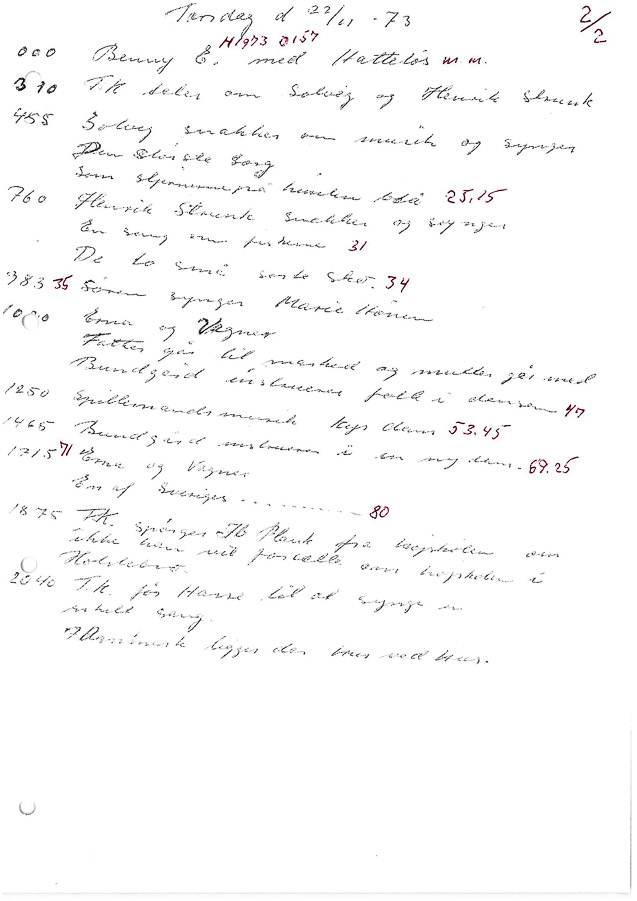 Torsdag d 22/11 - 73
2/2
H1973 0157
000 Benny E. med Hatteløs m.m.
310 T.K. taler om Solvejg og Henrik Strunk
455 Solvejg snakker om musik og synger
Den største sorg
Som stjernerne på himlen blå 25,15
760 Henrik Strunk snakker og synger
En sang om fiskerne 31
De to små røde sko. 34
983 35 Søren synger Marie Hønen
1000 Erna og Vagner
Fatter går til marked og mutter går med
Bundgård instruerer folk i dansen 47
1250 Spillemandsmusik Kys dans 53.45
1465 Bundgård instruerer i en ny dans. 69.25
1715 71 Erna og Vagner
En af Sveriges .......... 80
1875 T.K. spørger Ib Plank fra højskolen om
ikke han vil fortælle om højskolen i
Holstebro.
2040 T.K. får Hasse til at synge en
enkelt sang.
I Danmark ligger der Hus ved Hus.